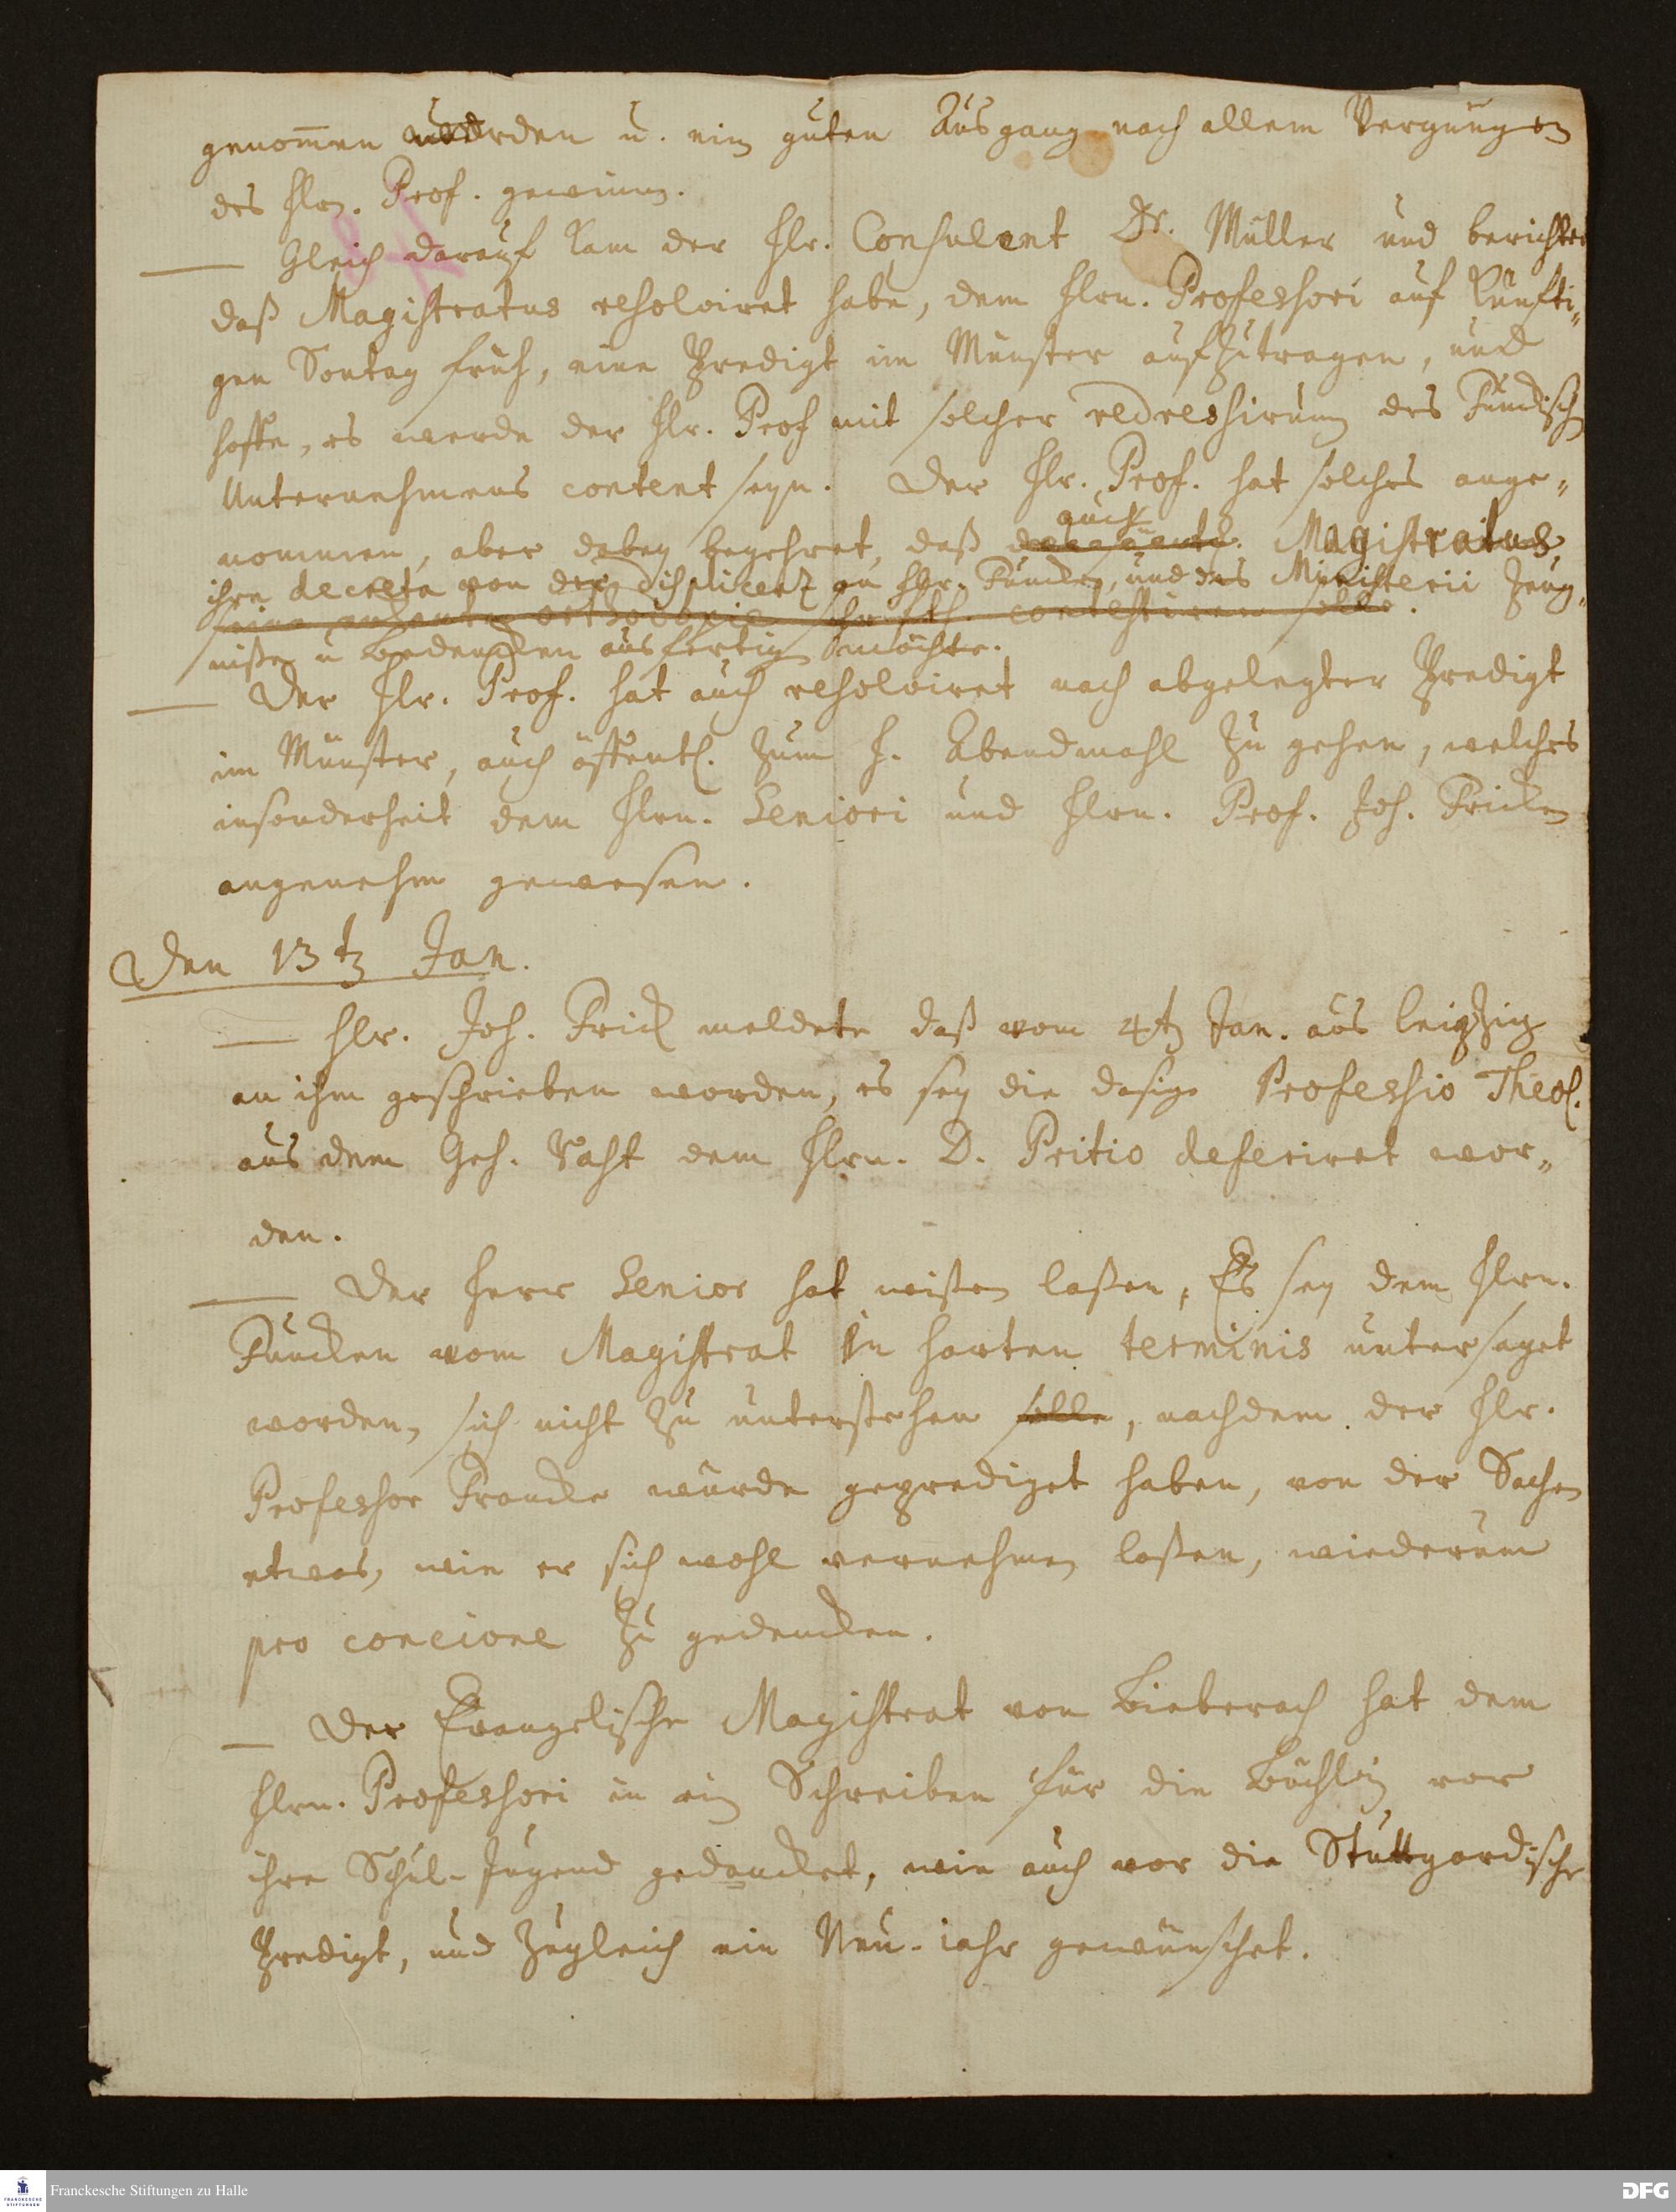 genom̄en werden u. ein guten Ausgang nach allem Vergnügen
des Hrn. Prof. gewinnen.
— Gleich darauf kam der Hr. Consulent Dr. Müller und berichtet
daß Magistratus resolviret habe, dem Hrn. Professori auf künfti„
gen Sontag früh, eine Predigt im Münster aufzutragen, und
hoffe, es werde der Hr. Prof mit solcher redressirung des Funckischen
Unternehmens content seyn. Der Hr. Prof. hat solches ange„
nommen, aber dabey begehret, daß auch Magistratus
ihre decreta von der displicenz an Hr. Funcken, und des Ministerii Zeug„
seine orthodoxie schrifftl. contestiren solle.
nißen u Bedencken ausfertigen möchte.
— Der Hr. Prof. hat auch resolviret nach abgelegter Predigt
im Münster, auch öffentl. zum H. Abendmahl zu gehen, welches
insonderheit dem Hrn. Seniori und Hrn. Prof. Joh. Fricken
angenehm gewesen.
Den 13t. Jan.
— Hr. Joh. Frick meldete daß vom 4t. Jan. aus Leipzig
an ihm geschrieben worden, es sey die dasige Professio Theol.
aus dem Geh. Raht dem Hrn. D. Pritio deferiret wor„
den.
— Der Herr Senior hat wißen laßen, Es sey dem Hrn.
Funcken vom Magistrat in harten terminis untersaget
worden, sich nicht zu unterstehen solle, nachdem der Hr.
Professor Francke würde geprediget haben, von der Sachen
etwas, wie er sich wohl vernehmen laßen, wiederum
pro concione zu gedencken.
— Der Evangelische Magistrat von Bieberach hat dem
Hrn. Professori in ein Schreiben für die Büchlein vor
ihre Schul-Jugend gedancket, wie auch vor die Stuttgardische
Predigt, und zugleich ein Neu-iahr gewünschet.
Franckesche Stiftungen zu Halle
FRANCKESCHE STIFTUNGEN
DFG